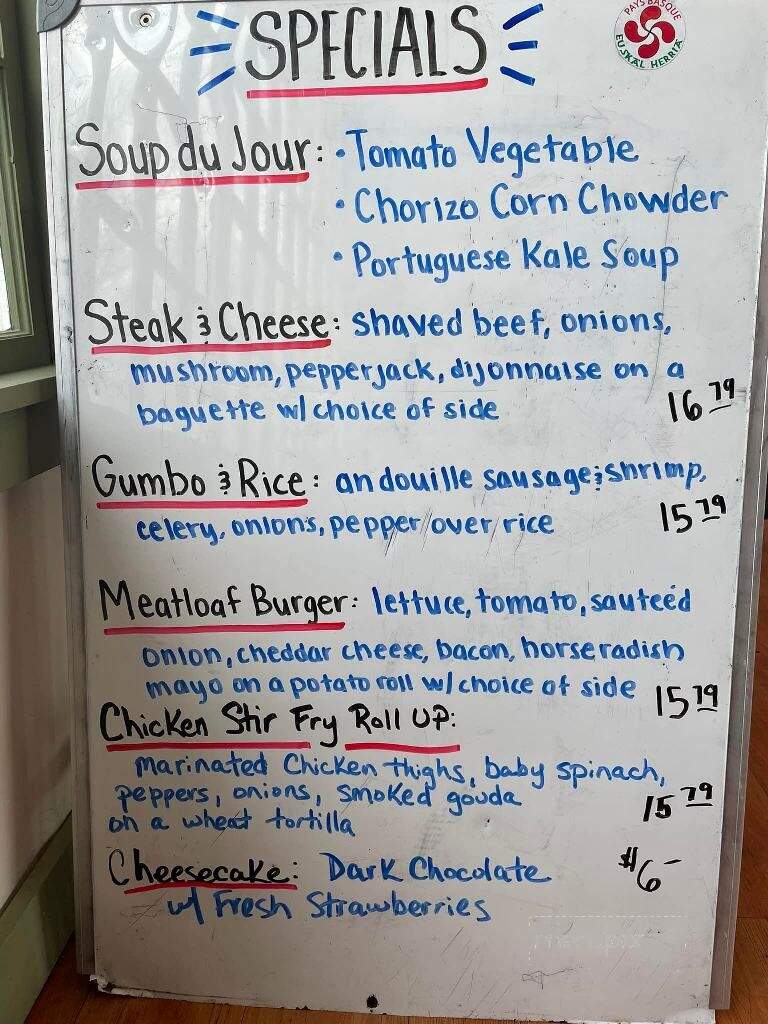 SPECIALS
PAYS BASQUE
EUSKAL HERRIA
Soup du Jour: • Tomato Vegetable
• Chorizo Corn Chowder
• Portuguese Kale Soup
Steak & Cheese: shaved beef, onions,
mushroom, pepperjack, dijonnaise on a
baguette w/ choice of side 16 79
Gumbo & Rice: andouille sausage & shrimp,
celery, onions, pepper/over rice 15 79
Meatloaf Burger: lettuce, tomato, sauteéd
onion, cheddar cheese, bacon, horseradish
mayo on a potato roll w/ choice of side 15 79
Chicken Stir Fry Roll UP:
Marinated Chicken thighs, baby spinach,
peppers, onions, smoked gouda 15 79
on a wheat tortilla
Cheesecake: Dark Chocolate $6 –
w/ Fresh Strawberries